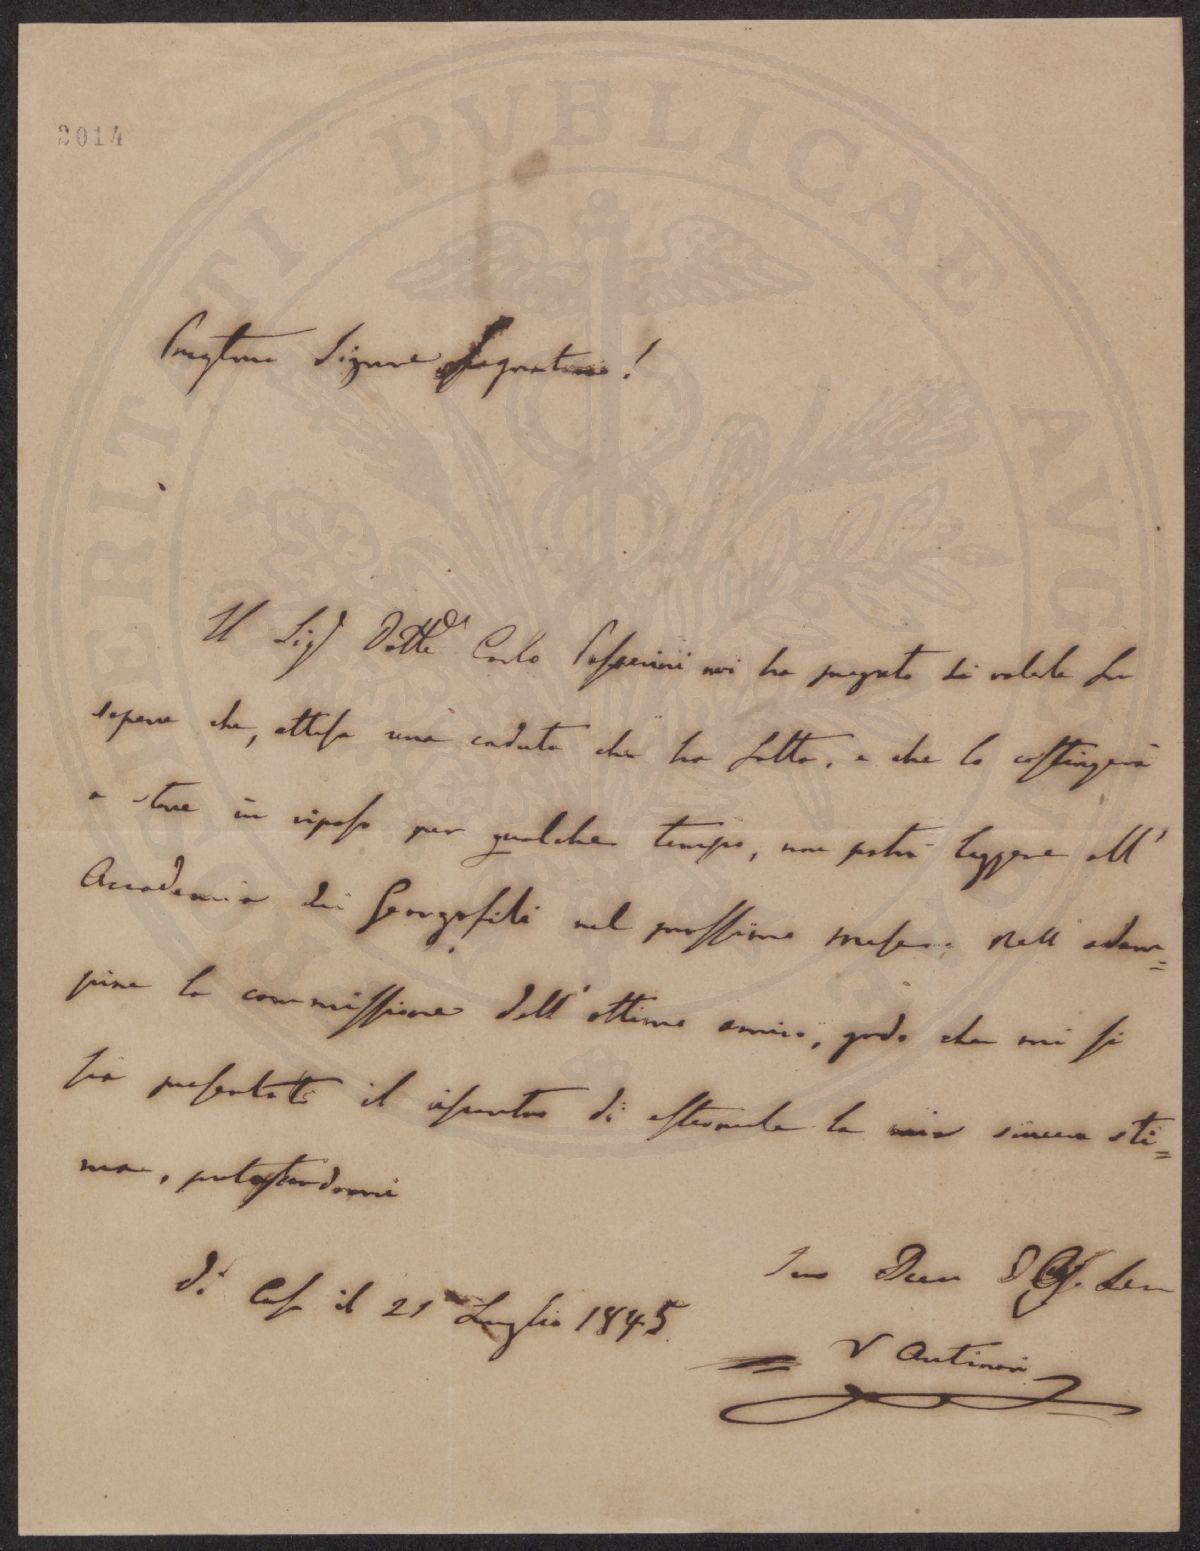 2014
PROSPERITATI PUBLICAE AUGENDAE
Signore Segretario!
Il Sig.r Dott.e Carlo Passerini mi ha pregato di volerle far
sapere che, attesa una caduta che ha fatta, e che lo costringerà
a stare in riposo per qualche tempo, non potrà leggere all'
Accademia dei Georgofili nel prossimo mese. Nell'adem=
pire la commissione dell'ottimo amico, godo che mi si
sia presentato il di esternarle la mia sincera sti=
ma, protestandomi
Di Casa il 21 Luglio 1845
Suo Dev.
V Antinori